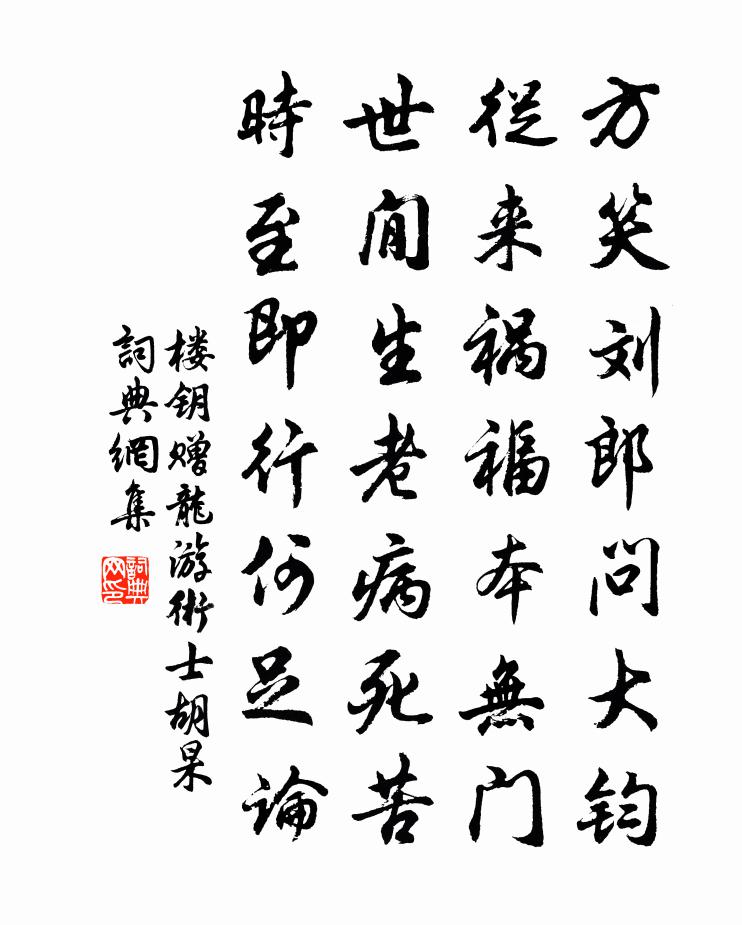 方笑刘郎问大钧
從来祸福本無门
世间生老病死苦
時至即行何足论
楼钥赠龍游術士胡杲
詞典網集
詞典网印